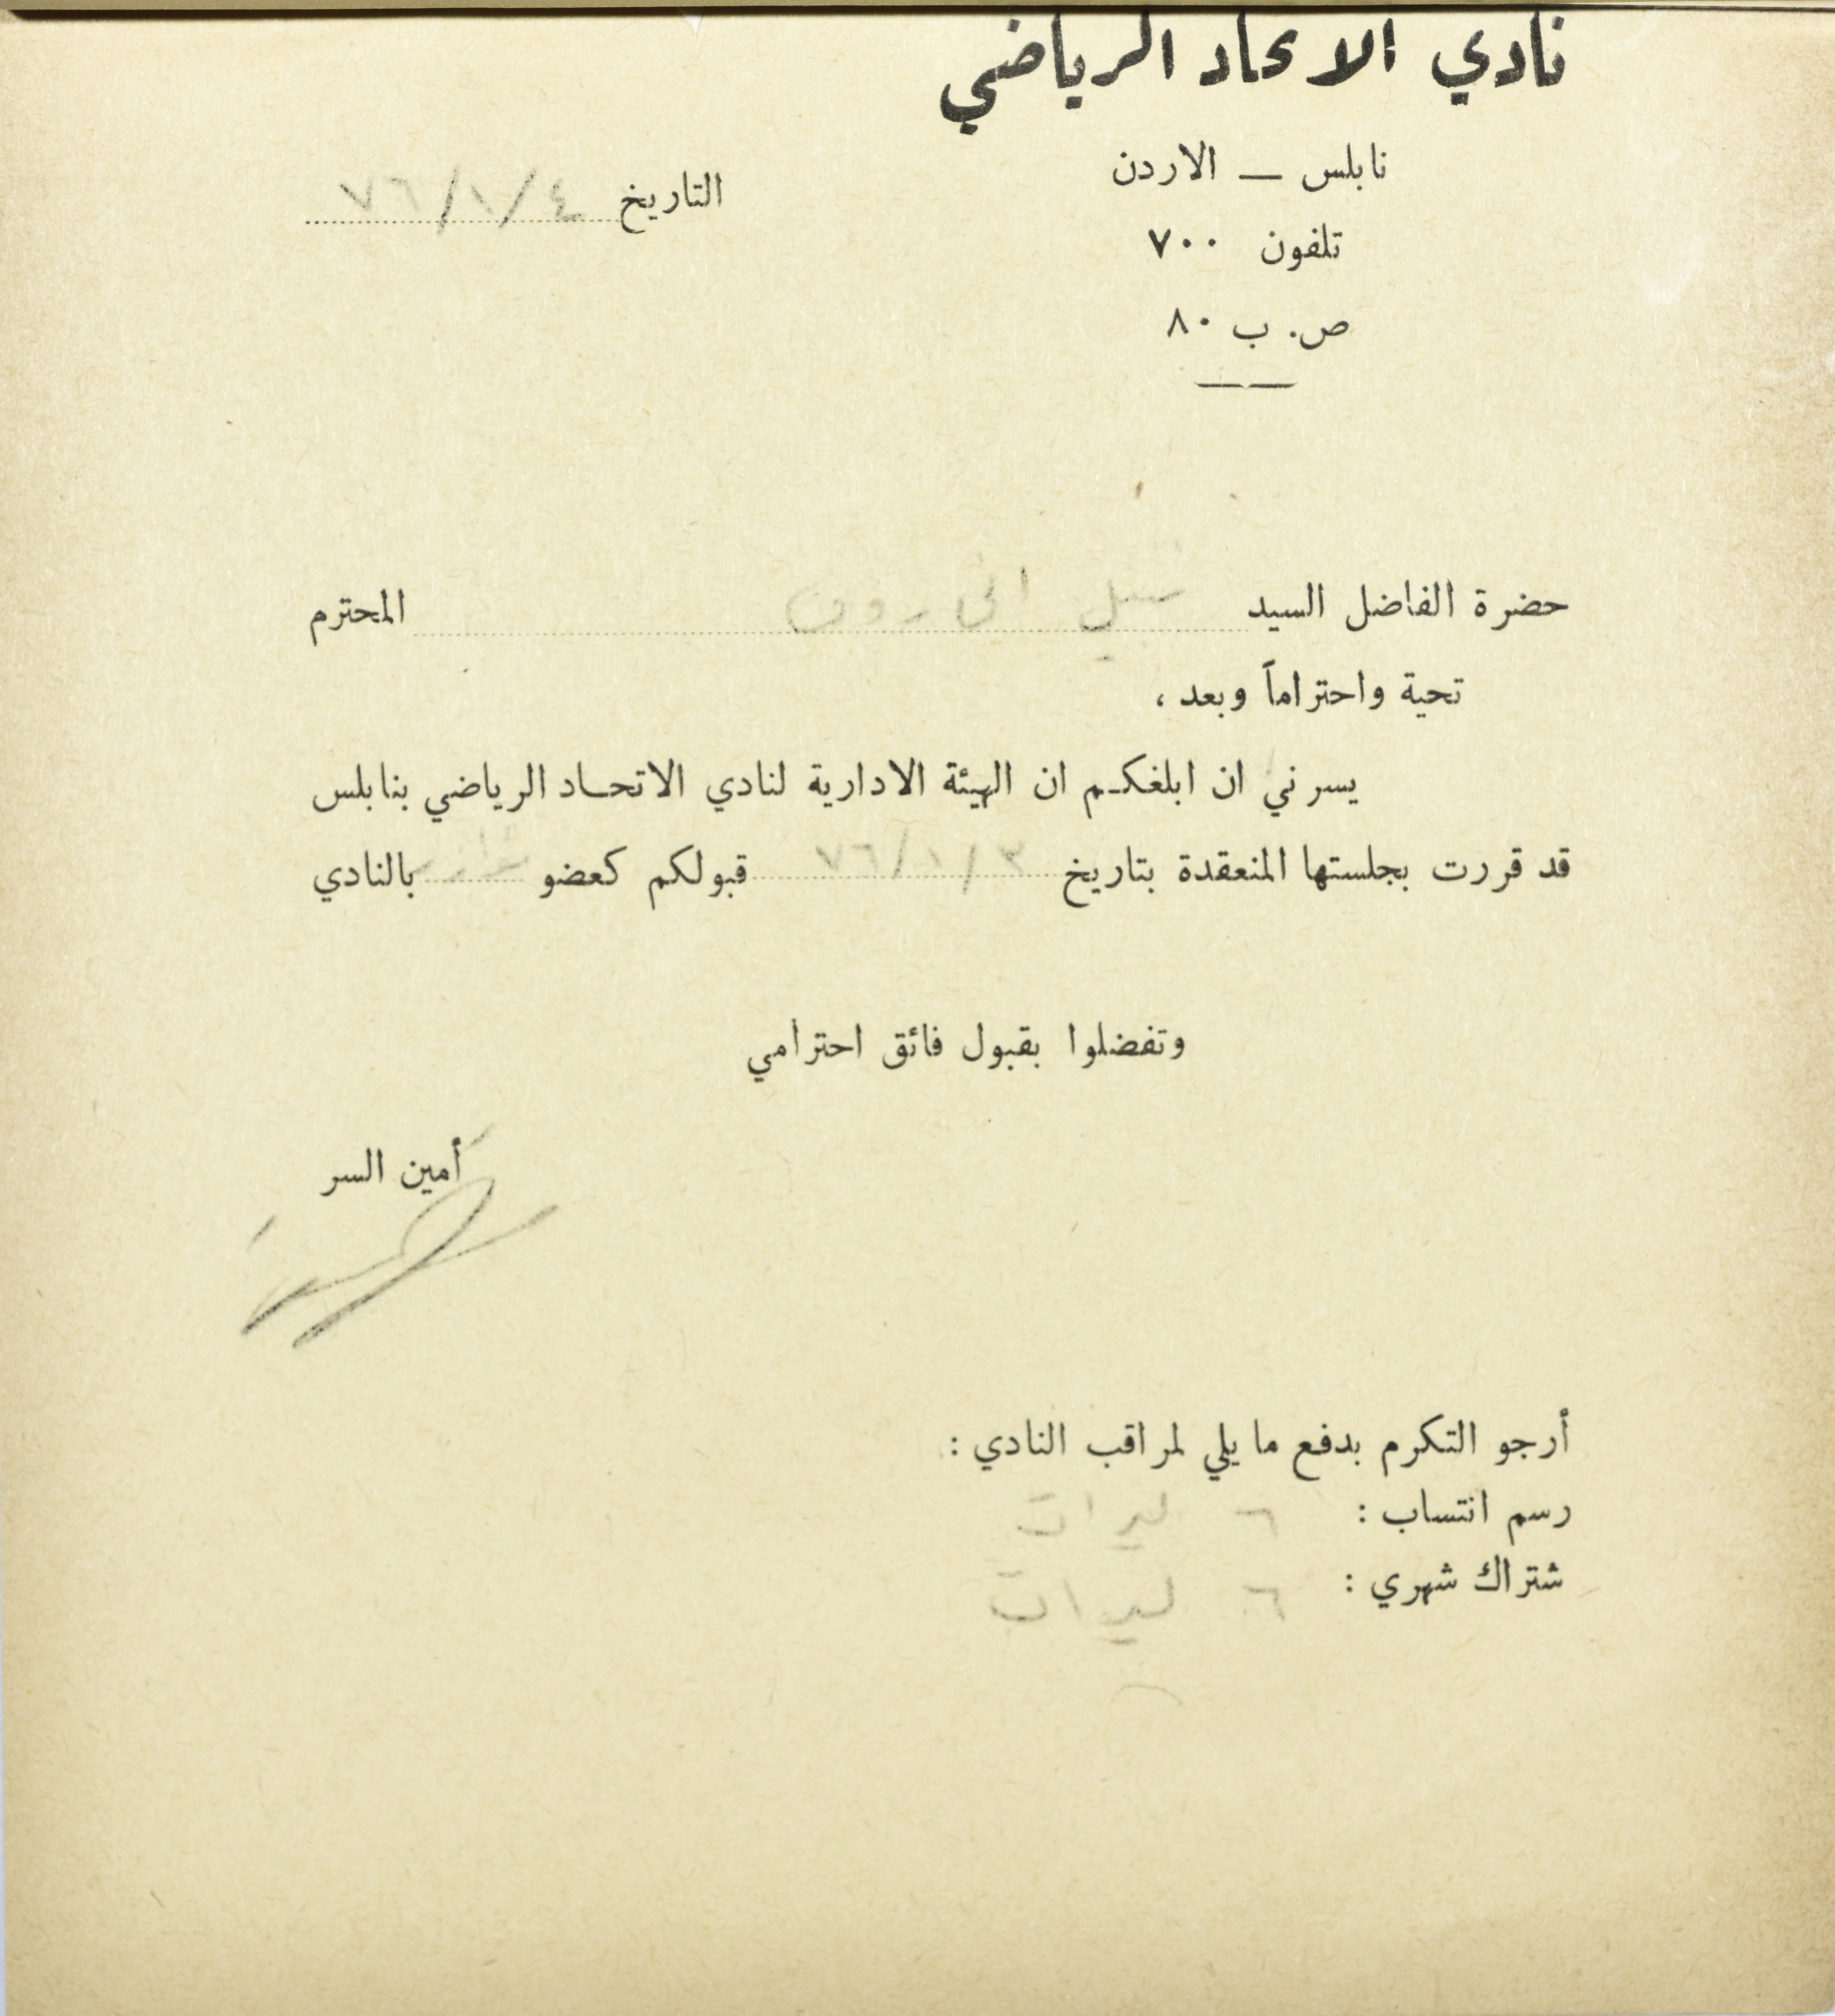 نادي الاتحاد الرياضي
نابلس — الاردن
تلفون ٧٠٠
ص. ب ٨٠
التاريخ ٤/١/٧٦
حضرة الفاضل السيد المحترم
تحية واحتراماً وبعد ،
يسرني ان ابلغكم ان الهيئة الادارية لنادي الاتحاد الرياضي بنابلس
قد قررت بجلستها المنعقدة بتاريخ ٣/١/٧٦ قبولكم كعضو بالنادي
وتفضلوا بقبول فائق احترامي
أمين السر
أرجو التكرم بدفع ما يلي لمراقب النادي :
رسم انتساب : ٦ ليرات
شتراك شهري : ٦ ليرات